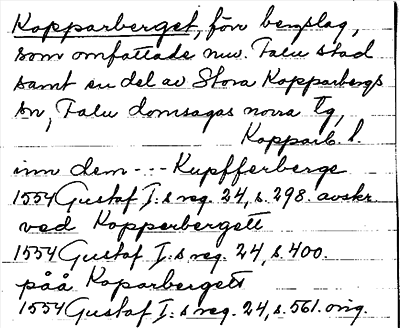 Kopparberget, förr bergslag,
som omfattade nuv. Falu stad
samt en del av Stora Kopparbergs
sn, Falu domsagas norra tg,
Kopparb. l.
inn dem --- Kupfferberge
1554 Gustaf I:s reg. 24, s. 298. avskr.
ved Kopperbergett
1554 Gustaf I:s reg. 24, s. 400.
påå Koparbergett
1554 Gustaf I:s reg. 24, s. 561. orig.